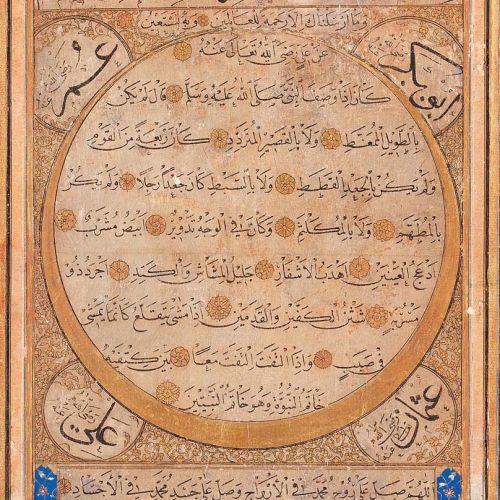 وما ارسلناك الا رحمة للعالمين وبه نستعين
ابو بكر رضي الله عنه
عمر رضي الله عنه
عن علي رضي الله تعالى عنه
كان اذا وصف النبي صلى الله عليه وسلم قال لم يكن
بالطويل الممغط ولا بالقصير المتردد كان ربعة من القوم
ولم يكن بالجعد القطط ولا بالسبط كان جعدا رجلا ولم يكن
بالمطهم ولا بالمكلثم وكان في الوجه تدوير ابيض مشرب
ادعج العينين اهدب الاشفار جليل المشاش والكتد اجرد ذو
مسربة شثن الكفين والقدمين اذا مشى يتقلع كانما يمشي
في صبب واذا التفت التفت معا بين كتفيه
خاتم النبوة وهو خاتم النبيين
عثمان رضي الله عنه
علي رضي الله عنه
اللهم صل على روح محمد في الارواح وصل على جسد محمد في الاجساد